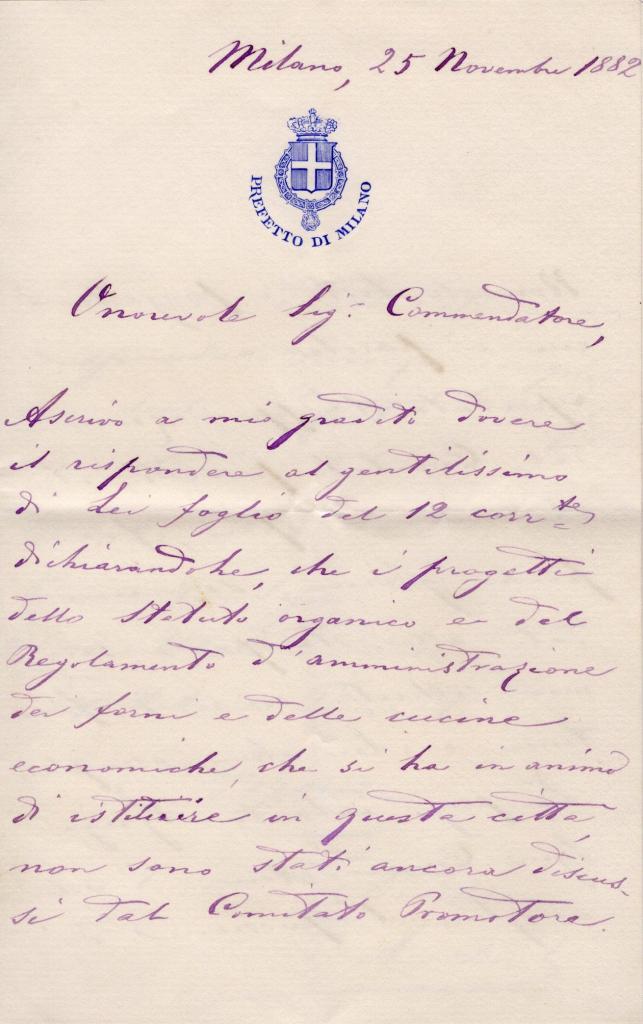 Milano, 25 Novembre 1882
PREFETTO DI MILANO
Onorevole Sigr. Commendatore,
Ascrivo a mio gradito dovere
il rispondere al gentilissimo
di Lei foglio del 12 corrte,
dichiarandole, che i progetti
dello Statuto organico e del
Regolamento d'amministrazione
dei forni e delle cucine
economiche, che si ha in animo
di istituire in questa città,
non sono stati ancora discus-
si dal Comitato Promotore.